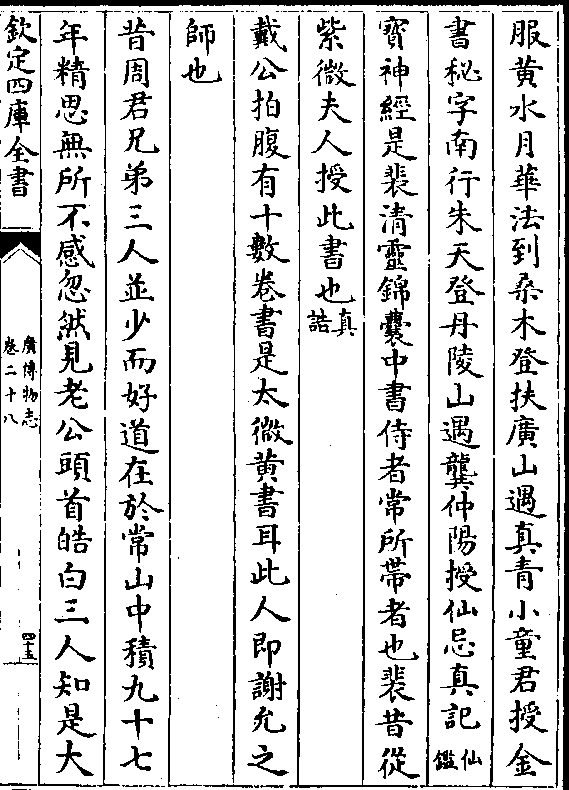 服黄水月華法到桑木登扶廣山遇真青小童君授金
書秘字南行朱天登丹陵山遇龔仲陽授仙忌真記仙鑑
寳神經是裴清靈錦囊中書侍者常所帶者也裴昔從
紫微夫人授此書也真誥
戴公拍腹有十數卷書是太微黄書耳此人即謝允之
師也
昔周君兄弟三人並少而好道在於常山中積九十七
年精思無所不感忽然見老公頭首皓白三人知是大
欽定四庫全書
廣博物志
卷二十八
四十五